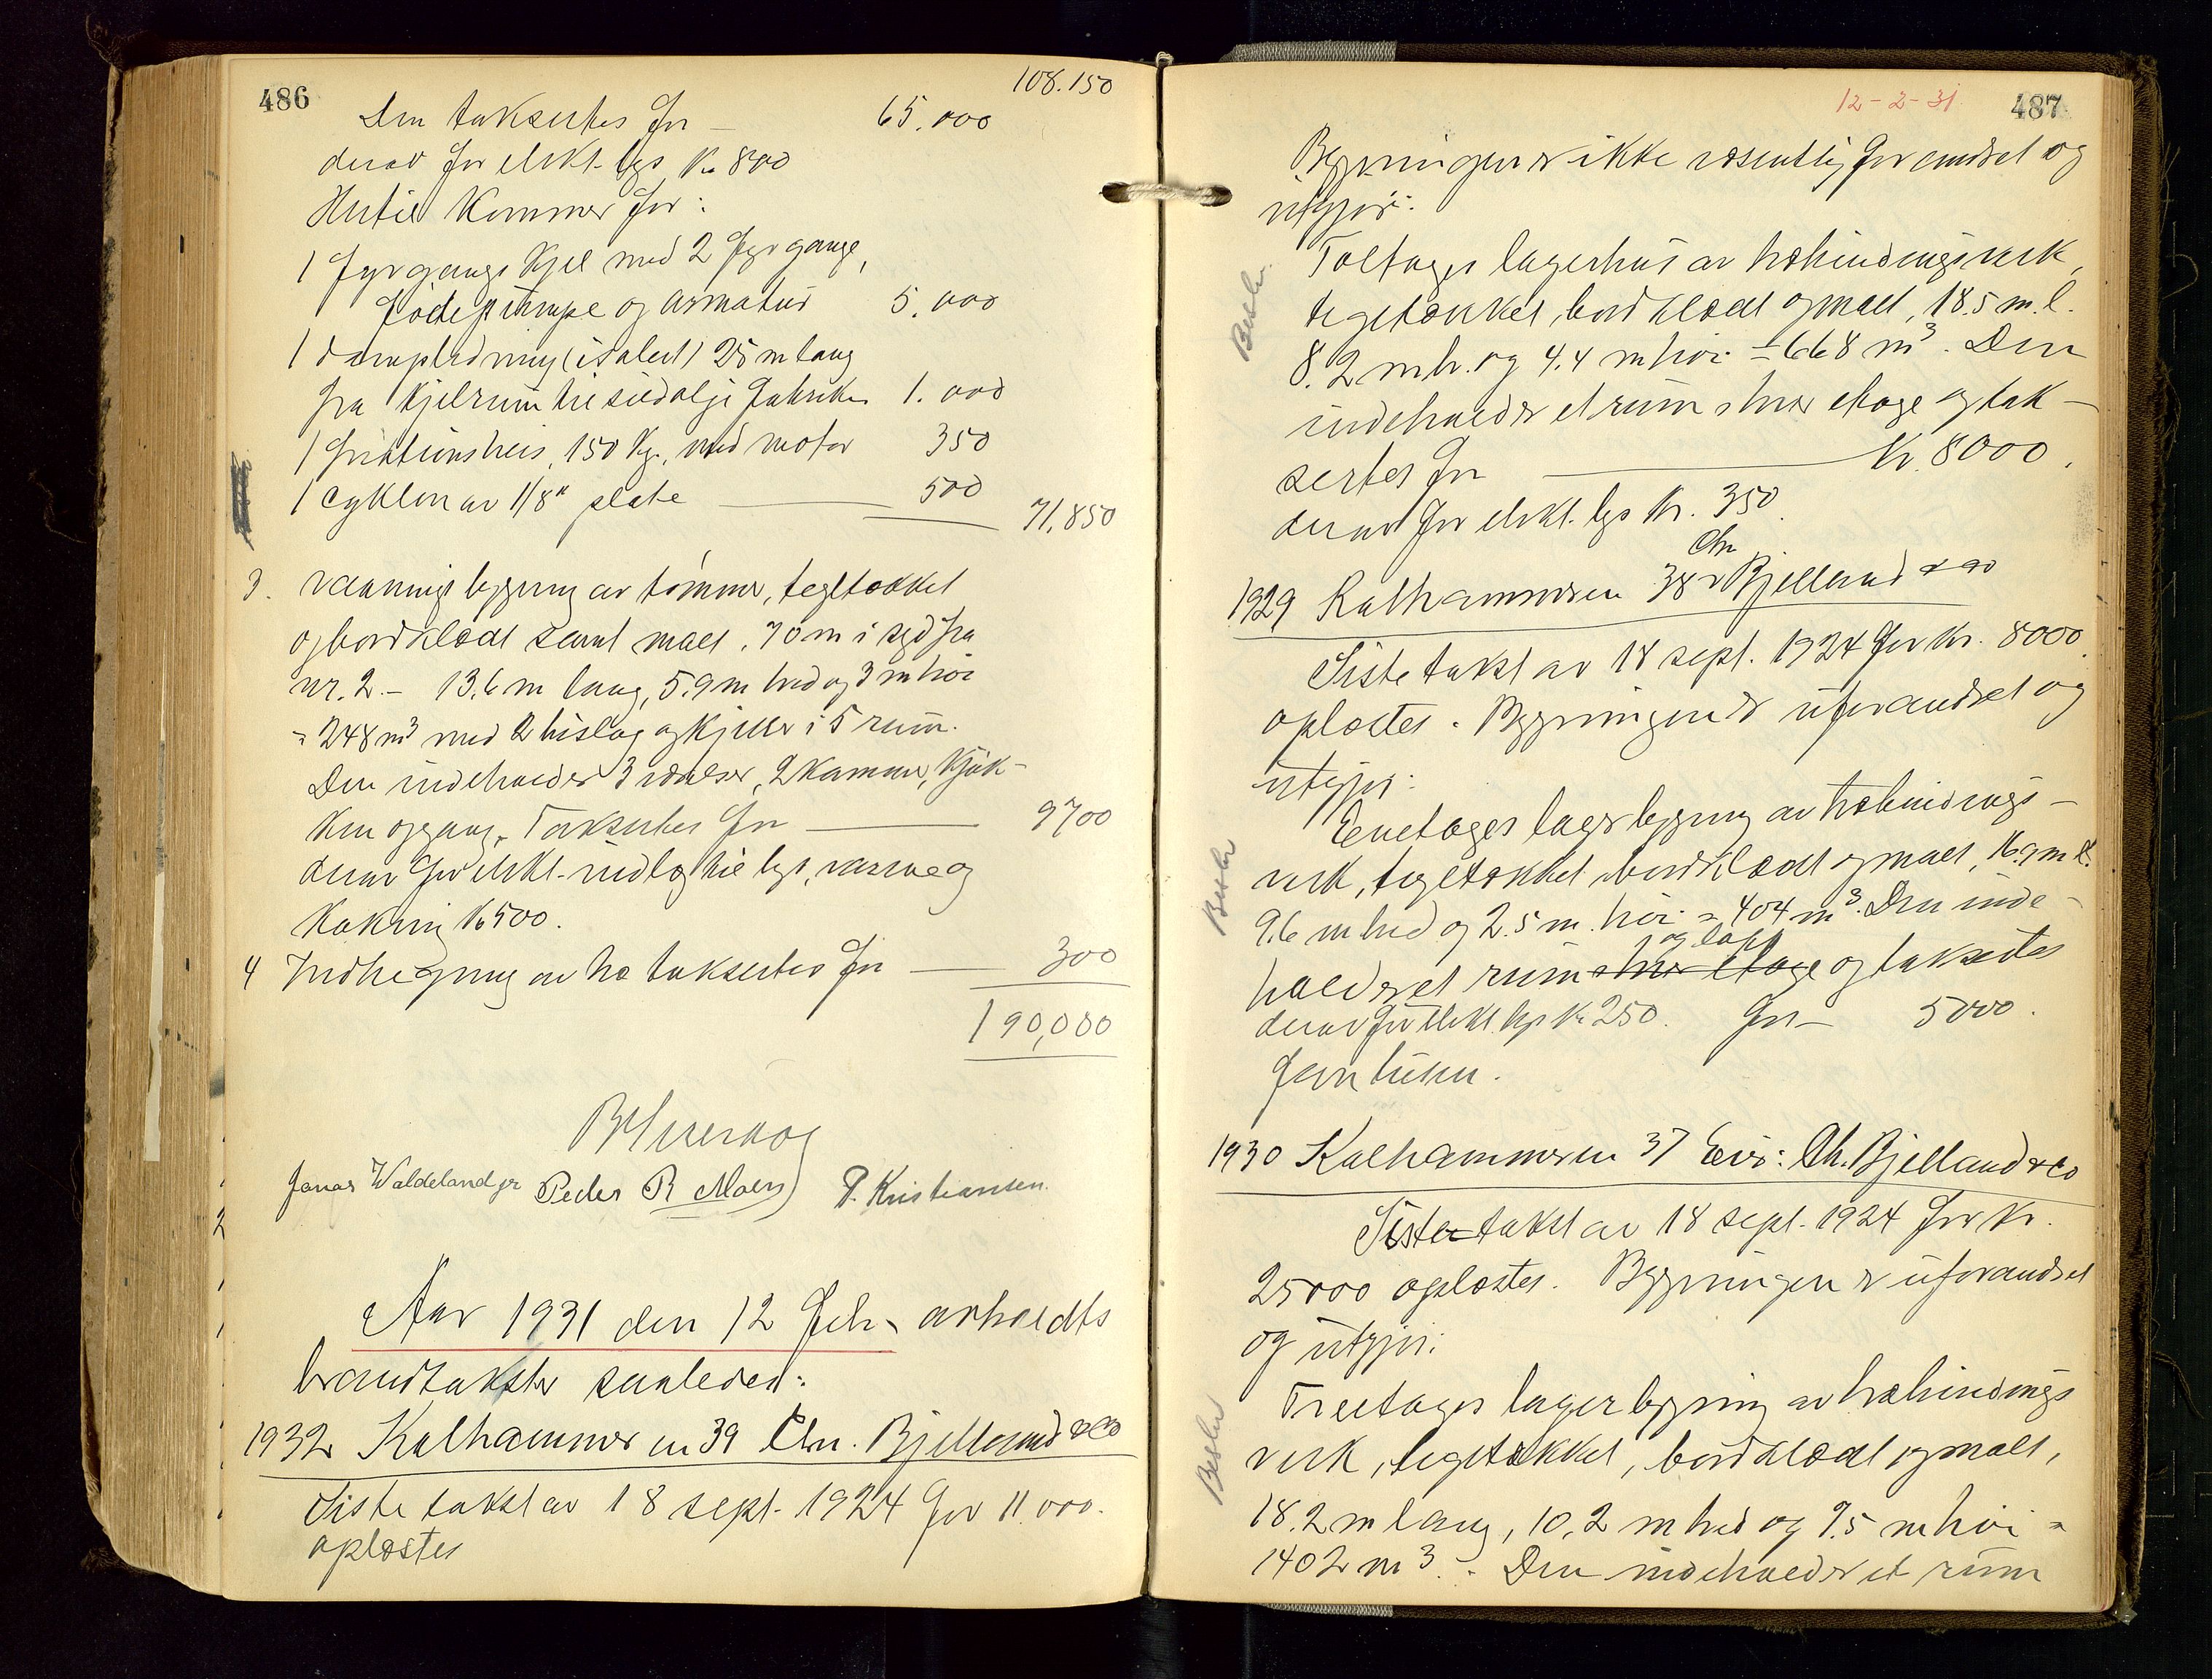 486
108.150
Den taksertes for – 65.000
derav for elekt. lys Kr 800
Hertil kommer for:
1 fyrgangs kjel med 2 fyrgange,
fødepumpe og armatur 5.000
1 dampledning (isolert) 25 m lang
fra kjelrum til sildoljefabriken 1.000
1 friktionsheis, 150 kg., med motor 350
1 cyklon av 1/8" plate 500
71.850
3. Vaaningsbygning av tømmer, tegltækket
og bordklædt samt malt, 70 m i syd fra
nr. 2 – 13.6 m lang, 5.9 m bred og 3 m høi
= 248 m³ med 2 bislag og kjeller i 5 rum.
Den indeholder 3 værelser, 2 kammer, kjøk-
ken og gang. Taksertes for 9700
derav for elekt. indlæg til lys, varme og
kokning Kr 500.
4 Indhegning av træ taksertes for 300
190,000
Jonas Waldeland jr Peder R. Moen P. Kristiansen
Aar 1931 den 12 Feb. avholdtes
brandtakster saaledes:
1932 Kalhammeren 39 Chr. Bjelland & Co
Siste takst av 18 sept. 1924 for 11.000.
oplæstes
12-2-31 487
Bygningen er ikke væsentlig forandret og
utgjør:
Toetages lagerhus av træbindingsverk,
tegltækket, bordklædt og malt, 18.5 m. l.
8.2 m br. og 4.4 m høi = 668 m³. Den
indeholder et rum i hver etage og tak-
sertes for Kr. 8000.
derav for elekt. lys Kr. 350.
1929 Kalhammeren 38 Chr Bjelland & Co
Siste takst av 18 sept. 1924 for Kr. 8000
oplæstes. Bygningen er uforandret og
utgjør:
Eenetages lagerbygning av træbindings-
verk, tegltækket, bordklædt og malt, 16.9 m l.
9.6 m bred og 2.5 m. høi = 404 m³. Den inde-
og loft
holder et rum i hver etage og taksertes
derav for elekt. lys Kr 250. for – 5000.
1930 Kalhammeren 37 Eier: Ch. Bjelland & Co
Siste takst av 18 sept. 1924 for Kr.
25000 oplæstes. Bygningen er uforandret
og utgjør:
Treetages lagerbygning av træbindings
verk, tegltækket, bordklædt og malt,
18.2 m lang, 10.2 m bred og 7.5 m høi =
1402 m³. Den indeholder et rum